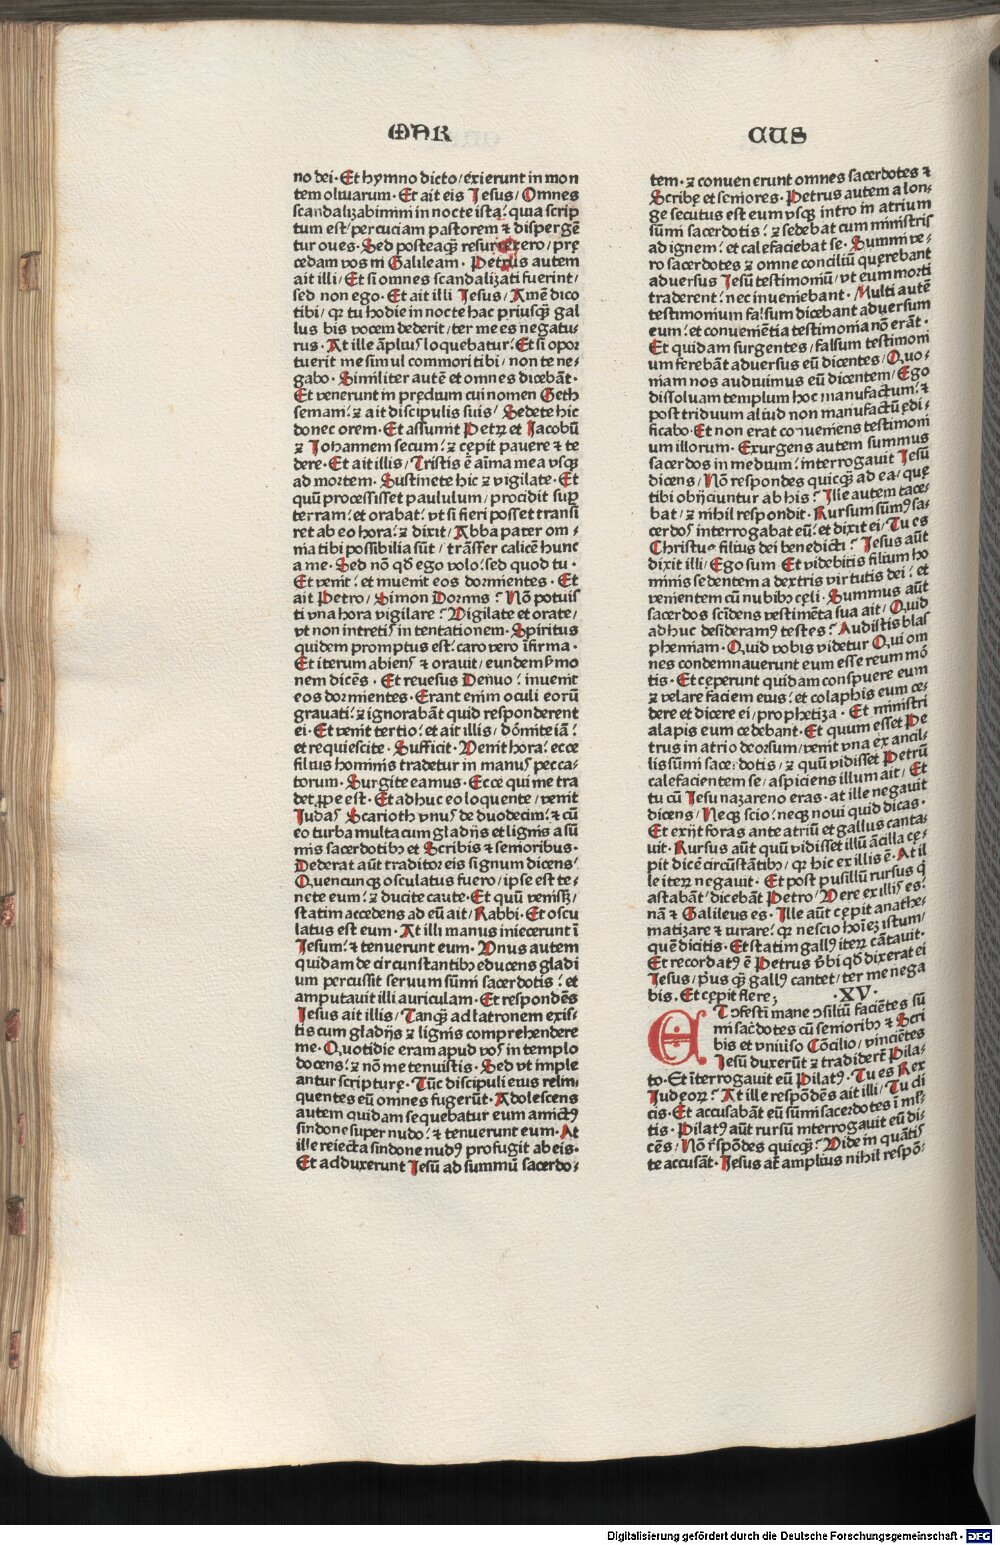 MAR
CUS
no dei · Et hymno dicto / exierunt in mon
tem olivarum · Et ait eis Jesus / Omnes
scandalizabimini in nocte ista: quia scrip
tum est / percuciam pastorem ⁊ dispergē
tur oves · Sed posteaqꝫ resurrexero / prę
cedam vos in Galileam · Petrus autem
ait illi / Et si omnes scandalizati fuerint /
sed non ego · Et ait illi Jesus / Amē dico
tibi / qꝛ tu hodie in nocte hac priusqꝫ gal
lus bis vocem dederit / ter me es negatu⸗
rus · At ille āplius loquebatur: Et si opor
tuerit me simul commori tibi / non te ne⸗
gabo · Similiter autē et omnes dicebāt ·
Et venerunt in prędium cui nomen Geth
semani: ⁊ ait discipulis suis / Sedete hic
donec orem · Et assumit Petrꝫ et Jacobū
⁊ Johannem secum: ⁊ cępit pavere ⁊ te
dere · Et ait illis / Tristis ē aīma mea vsqꝫ
ad mortem · Sustinete hic ⁊ vigilate · Et
quū processisset paululum / procidit sup
terram: et orabat: vt si fieri posset transi
ret ab eo hora: ⁊ dixit / Abba pater om⸗
nia tibi possibilia sūt / trāsfer calicē hunc
a me · Sed nō qđ ego volo: sed quod tu ·
Et venit: et invenit eos dormientes · Et
ait Petro / Simon Dormis? Nō potuis
ti vna hora vigilare? Vigilate et orate /
vt non intretis in tentationem · Spiritus
quidem promptus est: caro vero īfirma ·
Et iterum abiens ⁊ oravit / eundem ẜmo
nem dicēs · Et reversus Denuo: invenit
eos dormientes · Erant enim oculi eorū
gravati: ⁊ ignorabāt quid responderent
ei · Et venit tertio: et ait illis / dōmite iā:
et requiescite · Sufficit · Venit hora: ecce
filius hominis tradetur in manus pecca⸗
torum · Surgite eamus · Ecce qui me tra
det ꝓpe est · Et adhuc eo loquente / venit
Judas Scarioth vnus de duodecim: ⁊ cū
eo turba multa cum gladijs et lignis a sū
mis sacerdotibꝫ et Scribis ⁊ senioribus ·
Dederat aūt traditor eis signum dicens /
Quencunqꝫ osculatus fuero / ipse est te⸗
nete eum: ⁊ ducite caute · Et quū venisꝫ /
statim accedens ad eū ait / Rabbi · Et oscu
latus est eum · At illi manus iniecerunt ī
Jesum: ⁊ tenuerunt eum · Vnus autem
quidam de circunstantibꝫ educens gladi
um percussit servum sūmi sacerdotis: et
amputavit illi auriculam · Et respondēs
Jesus ait illis / Tanqꝫ ad latronem exis⸗
tis cum gladijs ⁊ lignis comprehendere
me · Quotidie eram apud vos in templo
docens: ⁊ nō me tenuistis · Sed vt imple
antur scripturę · Tūc discipuli eius relin⸗
quentes eū omnes fugerūt · Adolescens
autem quidam sequebatur eum amictꝰ
sindone super nudo: ⁊ tenuerunt eum · At
ille reiecta sindone nudꝰ profugit ab eis ·
Et adduxerunt Jesū ad summū sacerdo⸗
tem · ⁊ convenerunt omnes sacerdotes ⁊
Scribę et seniores · Petrus autem a lon⸗
ge secutus est eum vsqꝫ intro in atrium
sūmi sacerdotis: ⁊ sedebat cum ministris
ad ignem: et calefaciebat se · Summi ve⸗
ro sacerdotes ⁊ omne conciliū quęrebant
adversus Jesū testimoniū / vt eum morti
traderent: nec inveniebant · Multi autē
testimonium falsum dicebant adversum
eum: et convenietīa testimonia nō erāt ·
Et quidam surgentes / falsum testimoni
um ferebāt adversus eū dicentes / Quo⸗
niam nos audivimus eū dicentem / Ego
dissolvam templum hoc manufactum: ⁊
post triduum aliud non manufactū ędi⸗
ficabo · Et non erat conveniens testimoni
um illorum · Exurgens autem summus
sacerdos in medium: interrogavit Jesū
dicens / Nō respondes quicqꝫ ad ea / quę
tibi obijciuntur ab his? Ille autem tace⸗
bat / ⁊ nihil respondit · Rursum sūmꝰ sa⸗
cerdos interrogabat eū: et dixit ei / Tu es
Christus filius dei benedicti? Jesus aūt
dixit illi / Ego sum Et videbitis filium ho
minis sedentem a dextris virtutis dei: et
venientem cū nubibꝫ cęli · Summus aūt
sacerdos scīdens vestimēta sua ait / Quid
adhuc desideramꝰ testes? Audistis blas
phemiam · Quid vobis videtur Qui om
nes condemnaverunt eum esse reum mō
tis · Et cęperunt quidam conspuere eum
⁊ velare faciem eius: et colaphis eum ce⸗
dere et dicere ei / prophetiza · Et ministri
alapis eum cędebant · Et quum esset Pe
trus in atrio deorsum / venit vna ex ancil⸗
lis sūmi sacerdotis / ⁊ quū vidisset Petrū
calefacientem se / aspiciens illum ait / Et
tu cū Jesu nazareno eras · at ille negavit
dicens / Neqꝫ scio: neqꝫ novi quid dicas ·
Et exijt foras ante atriū et gallus canta⸗
vit · Rursus aūt quū vidisset illū ācilla cę⸗
pit dicē circūstātibꝫ / qꝛ hic ex illis ē · At il
le iterꝫ negavit · Et post pusillū rursus q̄
astabāt / dicebāt Petro / Vere ex illis es:
nā ⁊ Galileus es · Ille aūt cępit anathe⸗
matizare ⁊ iurare: qꝛ nescio hoīeꝫ istum /
quē dicitis · Et statim gallꝰ iterꝫ cātavit ·
Et recordatꝰ ē Petrus ṽbi qđ dixerat ei
Jesus / p̄us qꝫ gallꝰ cantet / ter me nega
bis · Et cępit flere; · XV ·
ET ↄfestī mane ↄsiliū faciētes sū
mi sac̄dotes cū senioribꝫ ⁊ Scri
bis et vniṽso Cōcilio / vinciētes
Jesū duxerūt ⁊ tradiderē Pila⸗
to · Et īterrogavit eū Pilatꝰ · Tu es Rex
Judeoꝝ? At ille respōdēs ait illi / Tu di
cis · Et accusabāt eū sūmi sacerdotes ī ml̄
tis · Pilatꝰ aūt rursū interrogavit eū di⸗
cēs / Nō r̄spōdes quicqꝫ? Vide in quātis
te accusāt · Jesus aūt amplius nihil respō⸗
Digitalisierung gefördert durch die Deutsche Forschungsgemeinschaft - DFG